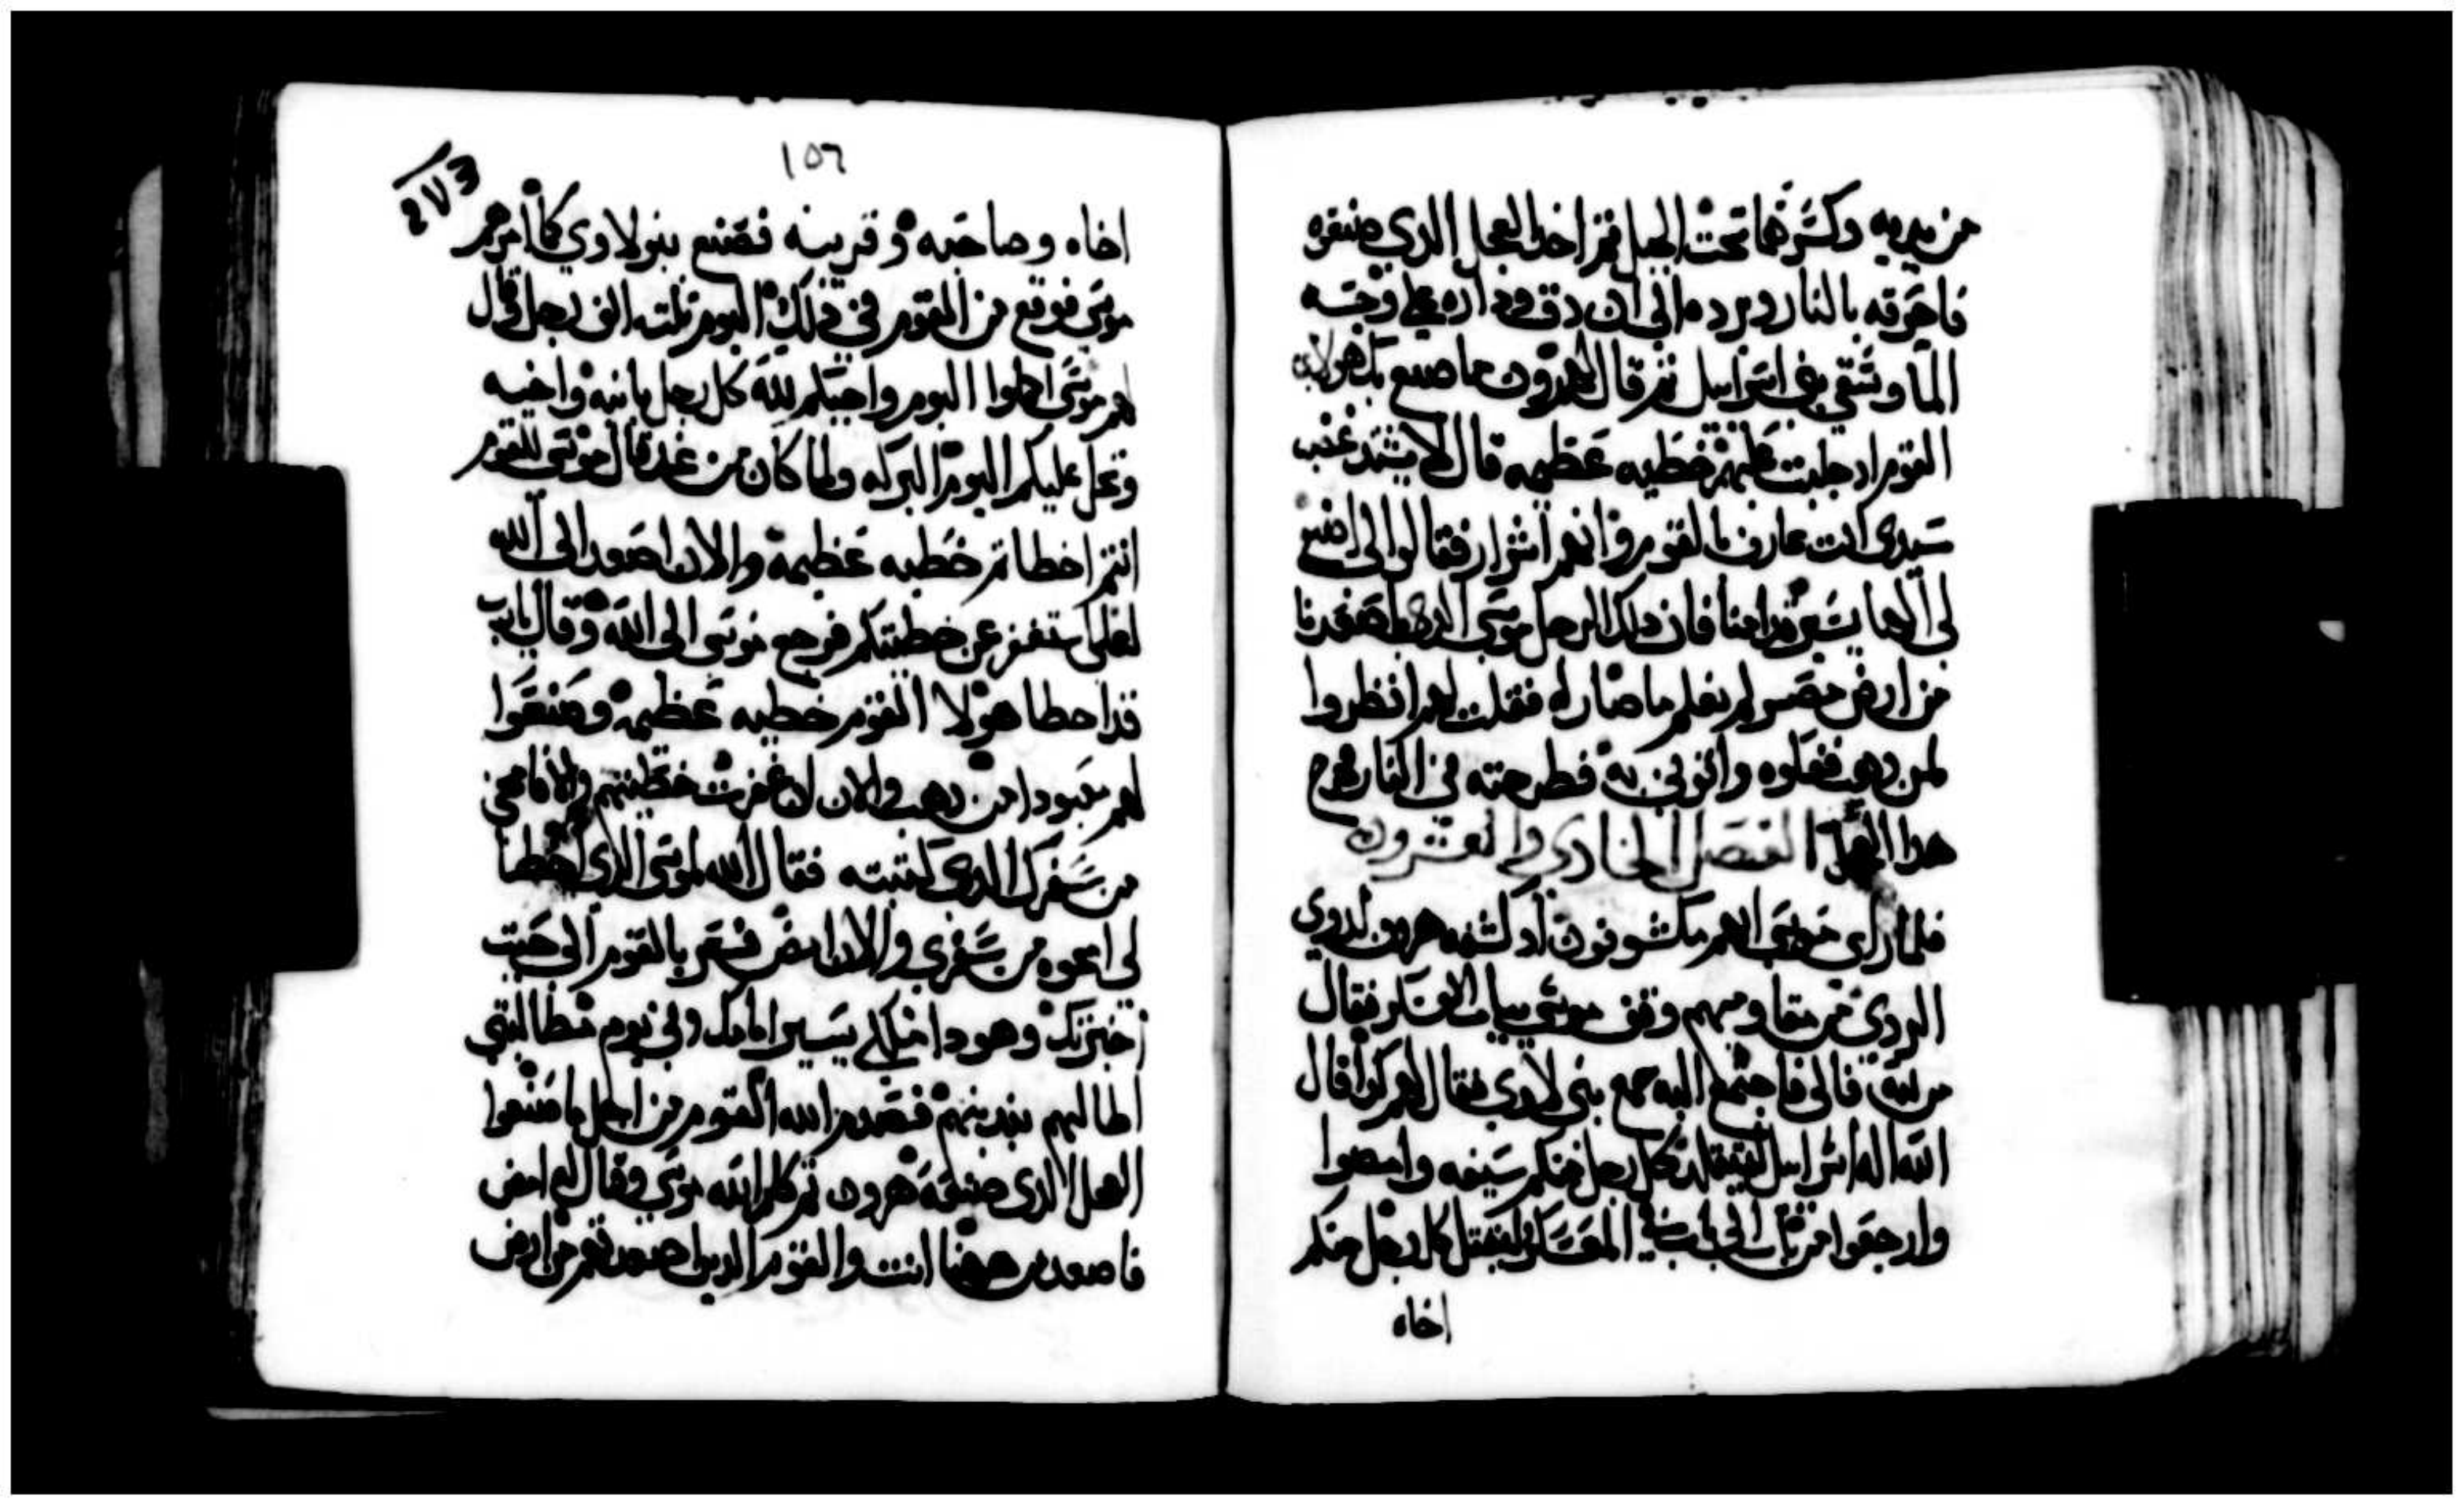 من يديه وكسرهما تحت الجبل ثم اخد العجل الدي صنعوه
فاحرقه بالنار وبرده الى ان دق ودراه على وجه
الما وسقي بني اسراييل ثم قال لهرون ما صنع بك هولاء
القوم اد جلبت عليهم خطيه عظيمه قال لا يشتد غضب
سيدى انت عارف بالقوم وانهم اشرار فقالوا لى اصنع
لى الها يسير قدامنا فان دلك الرجل موسى الدى اصعدنا
من ارض مصر لم نعلم ما صار له فقلت لهم انظروا
لمن دهب ففعلوه واتونى به فطرحته في النار فخرج
هدا العجل الفصل الحادي والعشرون
فلما راى موسى القوم مكشوفون اد كشفه هرون لدوي
الردي من مقاوميهم وقف موسي بباب العسكر فقال
من لله فالى فاجتمع اليه جمع بنى لاوي فقال لهم كدا قال
الله اله اسراييل ليتقلد كل رجل منكم سيفه وامضوا
وارجعوا من باب الى باب في العسكر ليقتل كل رجل منكم
اخاه
١٥٦
273
اخاه وصاحبه وقريبه فصنع بنو لاوي كما امرهم
موسى فوقع من القوم في دلك اليوم تلته الف رجل قال
لهم موسى اكملوا اليوم واجبكم لله كل رجل بابنه واخيه
وتحل عليكم اليوم البركه ولما كان من غد قال موسى للقوم
انتم اخطاتم خطيه عظيمة والان اصعد الى الله
لعلى استغفر عن خطيتكم فرجع موسى الى الله وقال يارب
قد اخطا هولا القوم خطيه عظيمة وصنعوا
لهم معبودا من دهب والان ان غفرت خطيتهم والا فامحنى
من سفرك الدى كتبته فقال الله لموسى الدي اخطا
لى امحوه من سفري والان امض فسر بالقوم الى حيت
اخبرتك وهودا ملاكى يسير امامك وفي يوم مطالبتي
اطالبهم بدنبهم فصدم الله القوم من اجل ما صنعوا
العجل الدى صنعه هرون ثم كلم الله موسى وقال له امض
فاصعد من ههنا انت والقوم الدين اصعدتهم من ارض